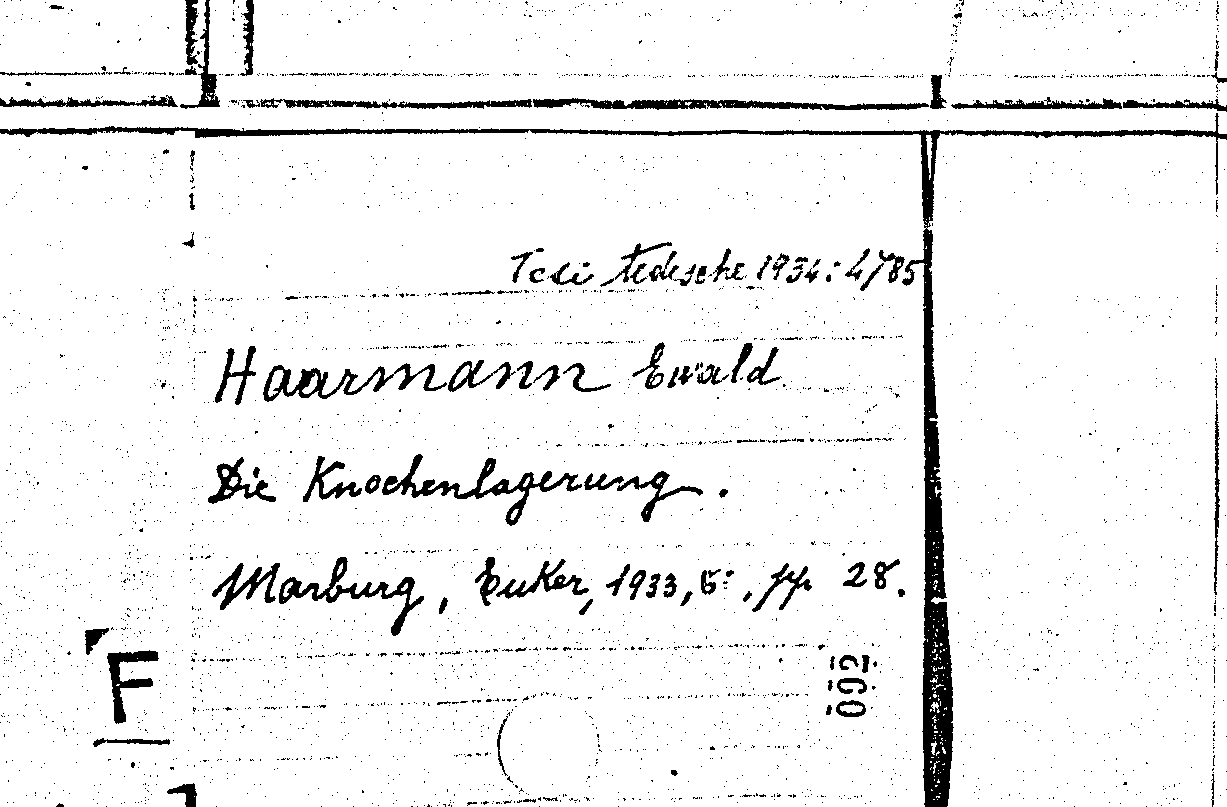 Tesi tedesche 1934: 4785
Haarmann Ewald
Die Knochenlagerung.
Marburg, Euker, 1933, 8°, pp. 28.
002
F